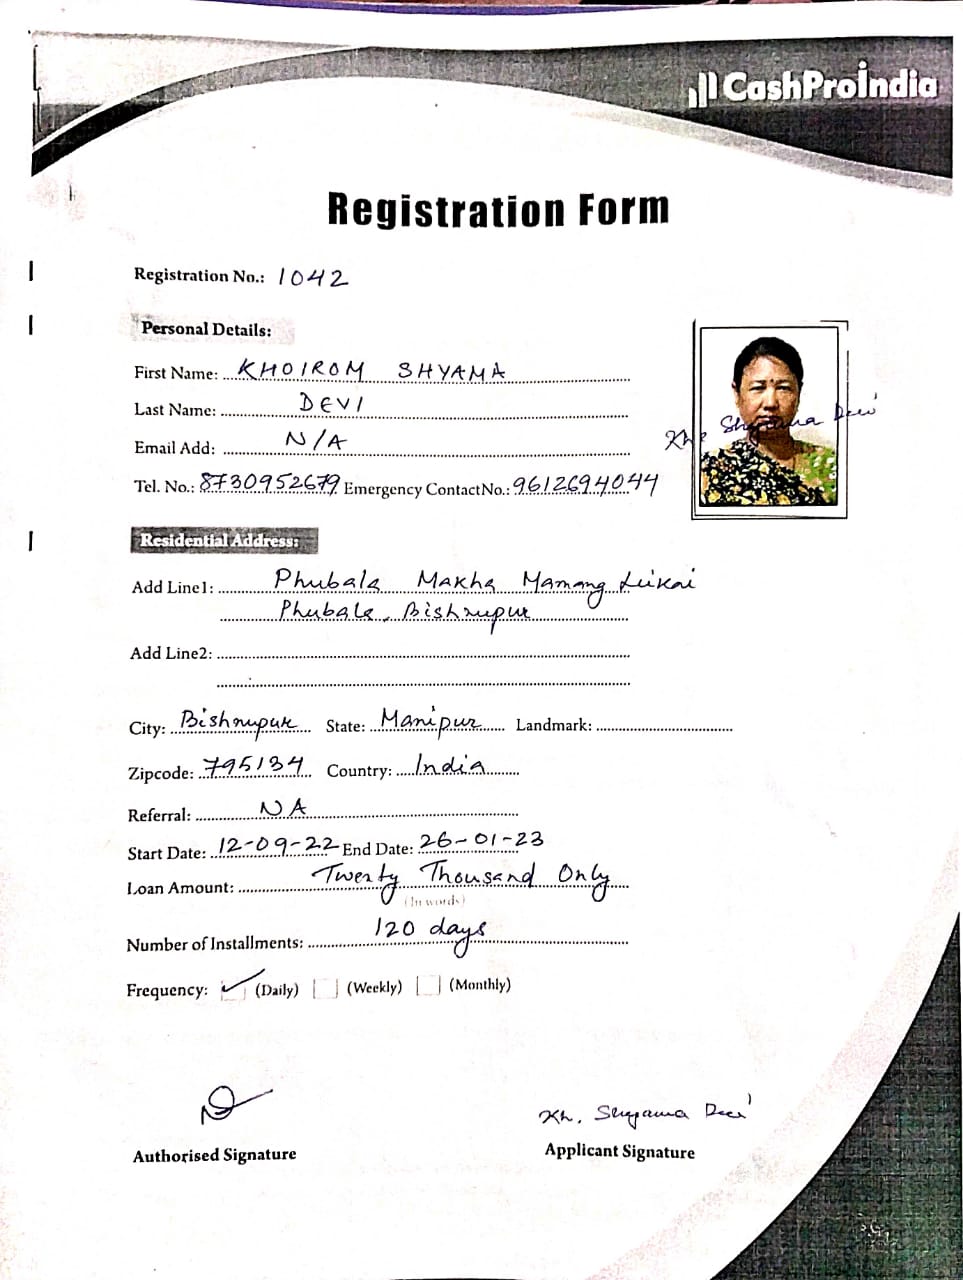 CashProIndia
Registration Form
Registration No.: 1042
Personal Details:
First Name: KHOIROM SHYAMA
Last Name: DEVI
Email Add: N/A
Tel. No.: 8730952679 Emergency ContactNo.: 9612694044
Kh. Shyama Devi
Residential Address:
Add Line1: Phubala Makha Mamang Leikai
Phubala, Bishnupur
Add Line2:
City: Bishnupur State: Manipur Landmark:
Zipcode: 795134 Country: India
Referral: NA
Start Date: 12-09-22 End Date: 26-01-23
Loan Amount: Twenty Thousand Only
(In words)
Number of Installments: 120 days
Frequency: (Daily) (Weekly) (Monthly)
Kh. Shyama Devi
Authorised Signature Applicant Signature